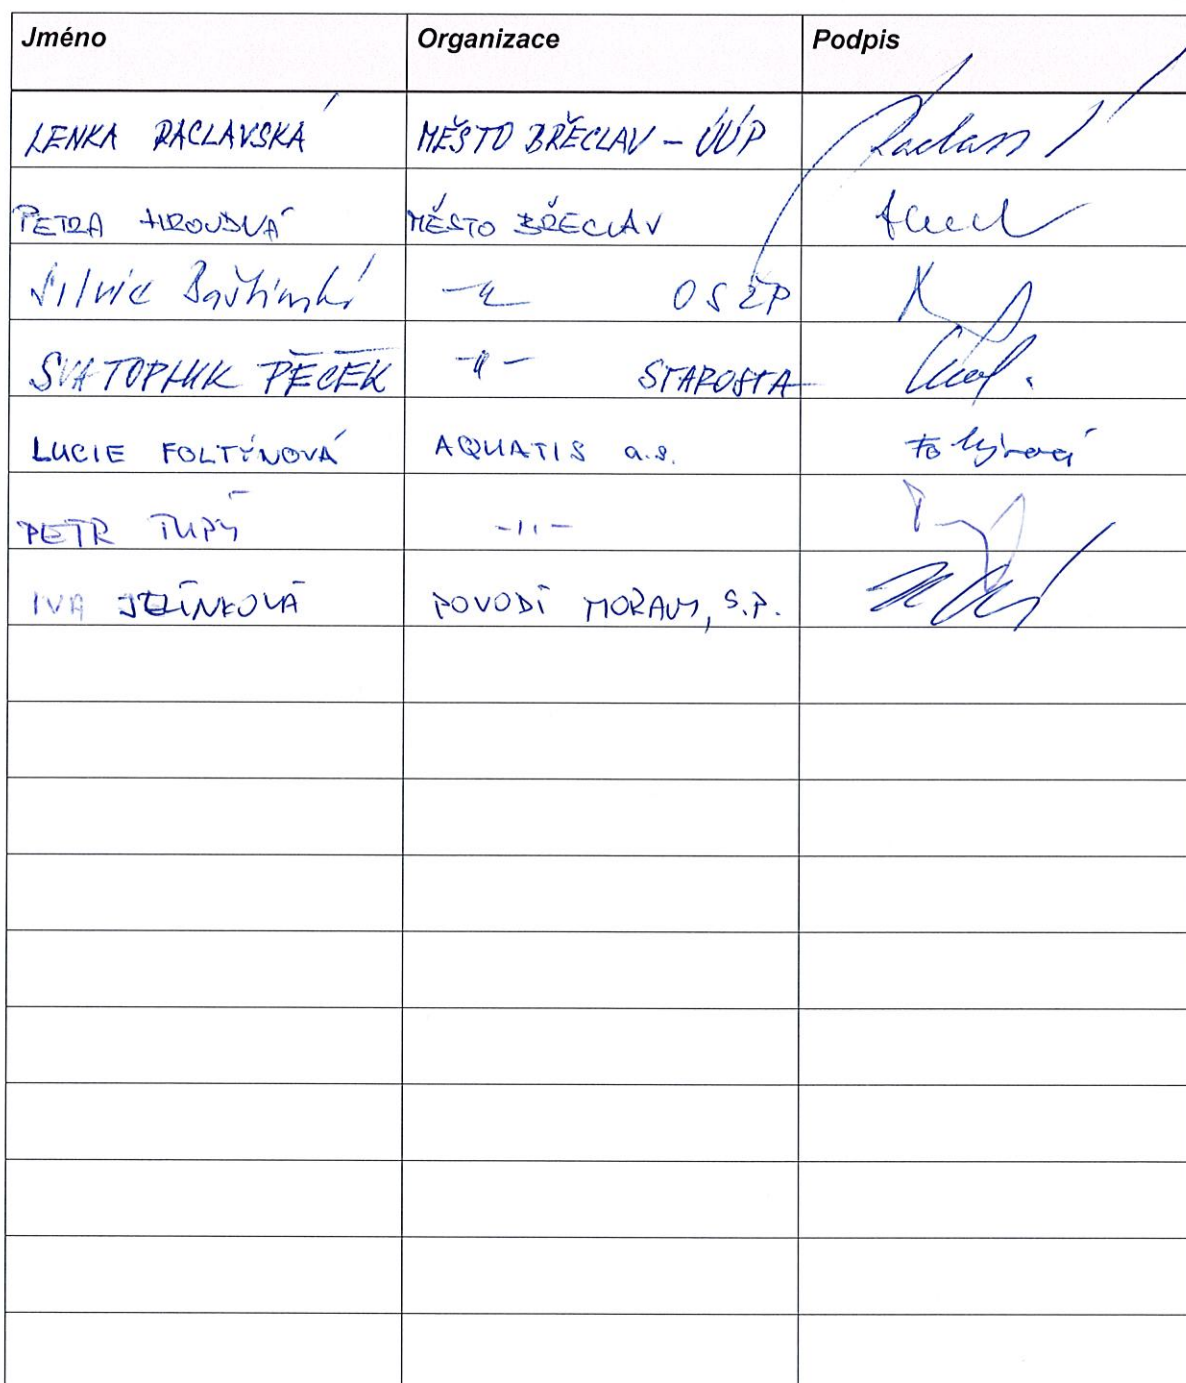 Jméno Organizace Podpis
LENKA RACLAVSKÁ MĚSTO BŘECLAV - ÚÚP
PETRA HROUDNÁ MĚSTO BŘECLAV
Silvie -"- OSŽP
SVATOPLUK PĚČEK -"- STAROSTA
LUCIE FOLTÝNOVÁ AQUATIS a.s. Foltýnová
PETR TUPÝ -"-
IVA JELÍNKOVÁ POVODÍ MORAVY, S.P.